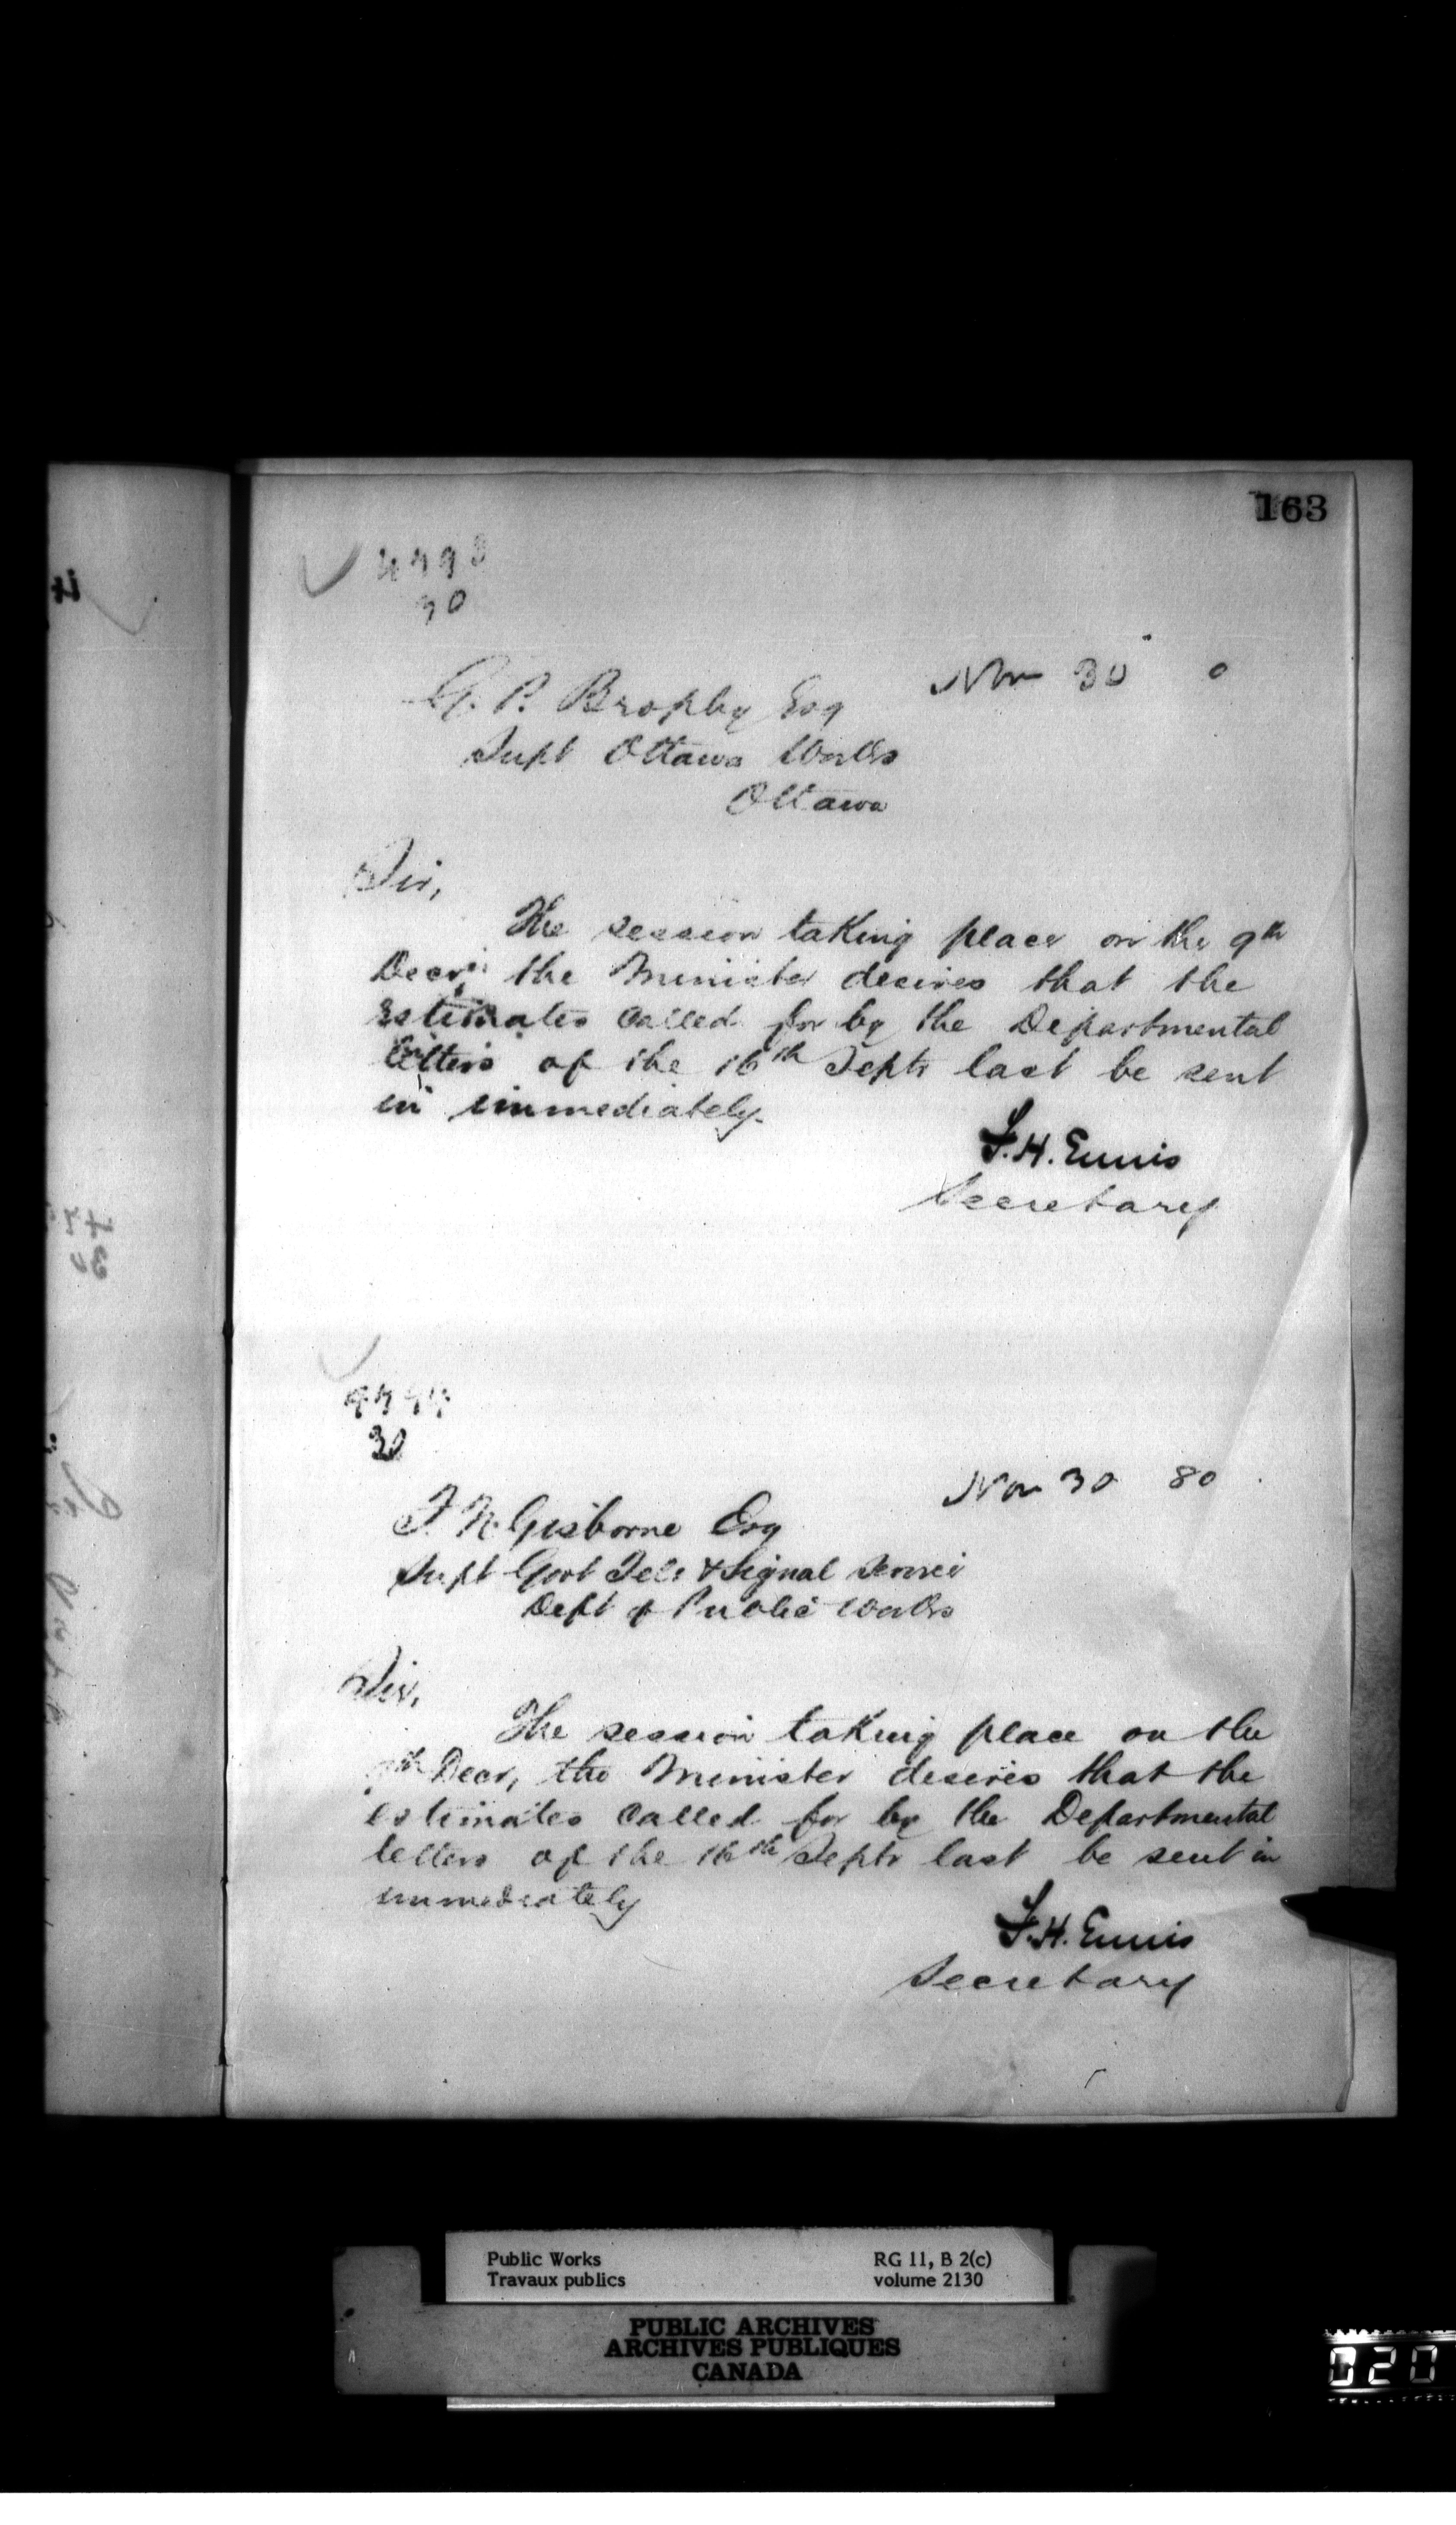 163
4493
30
Nov 30 0
G. P. Brophy Esq
Supt Ottawa Works
Ottawa
Sir,
The session taking place on the 9th
Decr, the Minister desires that the
Estimates called for by the Departmental
letters of the 16th Septr last be sent
in immediately.
F.H. Ennis
Secretary
4494
30
Nov 30 80
F. N. Gisborne Esq
Supt Govt Tele & Signal Service
Dept of Public Works
Sir,
The session taking place on the
9th Decr, the Minister desires that the
estimates called for by the Departmental
letters of the 16th Septr last be sent in
immediately
F.H. Ennis
Secretary
Public Works
Travaux publics
RG 11, B 2(c)
volume 2130
PUBLIC ARCHIVES
ARCHIVES PUBLIQUES
CANADA
020